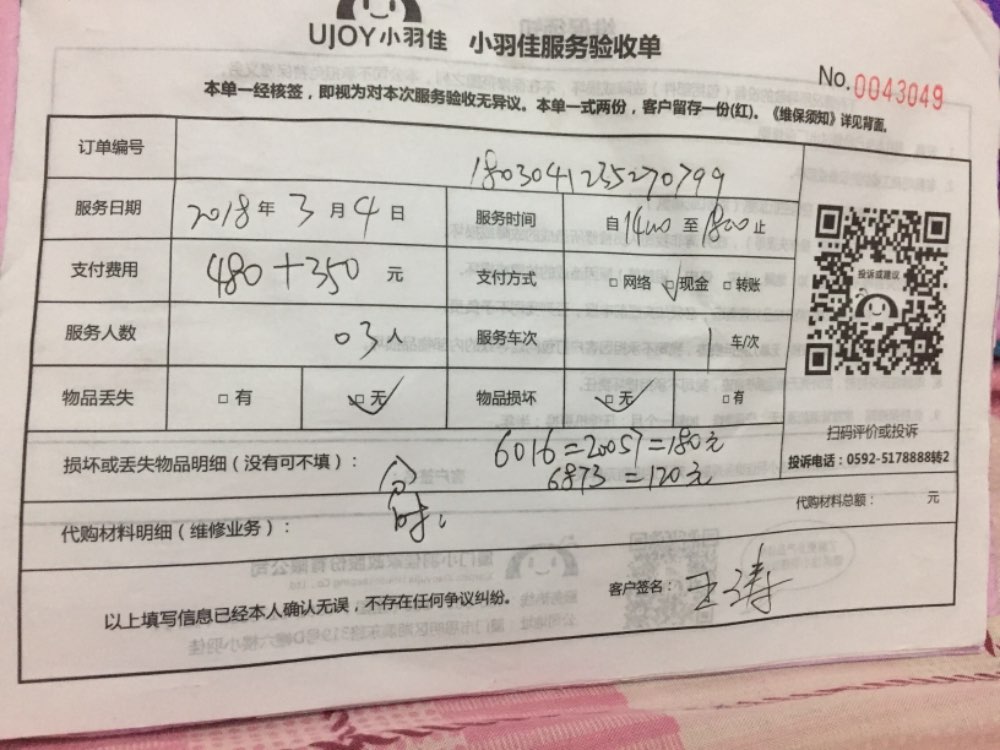 UJOY小羽佳 小羽佳服务验收单
No.0043049
本单一经核签，即视为对本次服务验收无异议。本单一式两份，客户留存一份(红)。《维保须知》详见背面。
订单编号 1803041235270799
服务日期 2018年3月4日 服务时间 自1400至1800止
支付费用 480+350元 支付方式 □网络 □现金 □转账
服务人数 03人 服务车次 1车/次
物品丢失 □有 □无 物品损坏 □无 □有
投诉或建议
扫码评价或投诉
投诉电话：0592-5178888转2
损坏或丢失物品明细（没有可不填）： 6016=20057=180元
6873=120元
代购材料明细（维修业务）： 代购材料总额： 元
以上填写信息已经本人确认无误，不存在任何争议纠纷。 客户签名：王涛